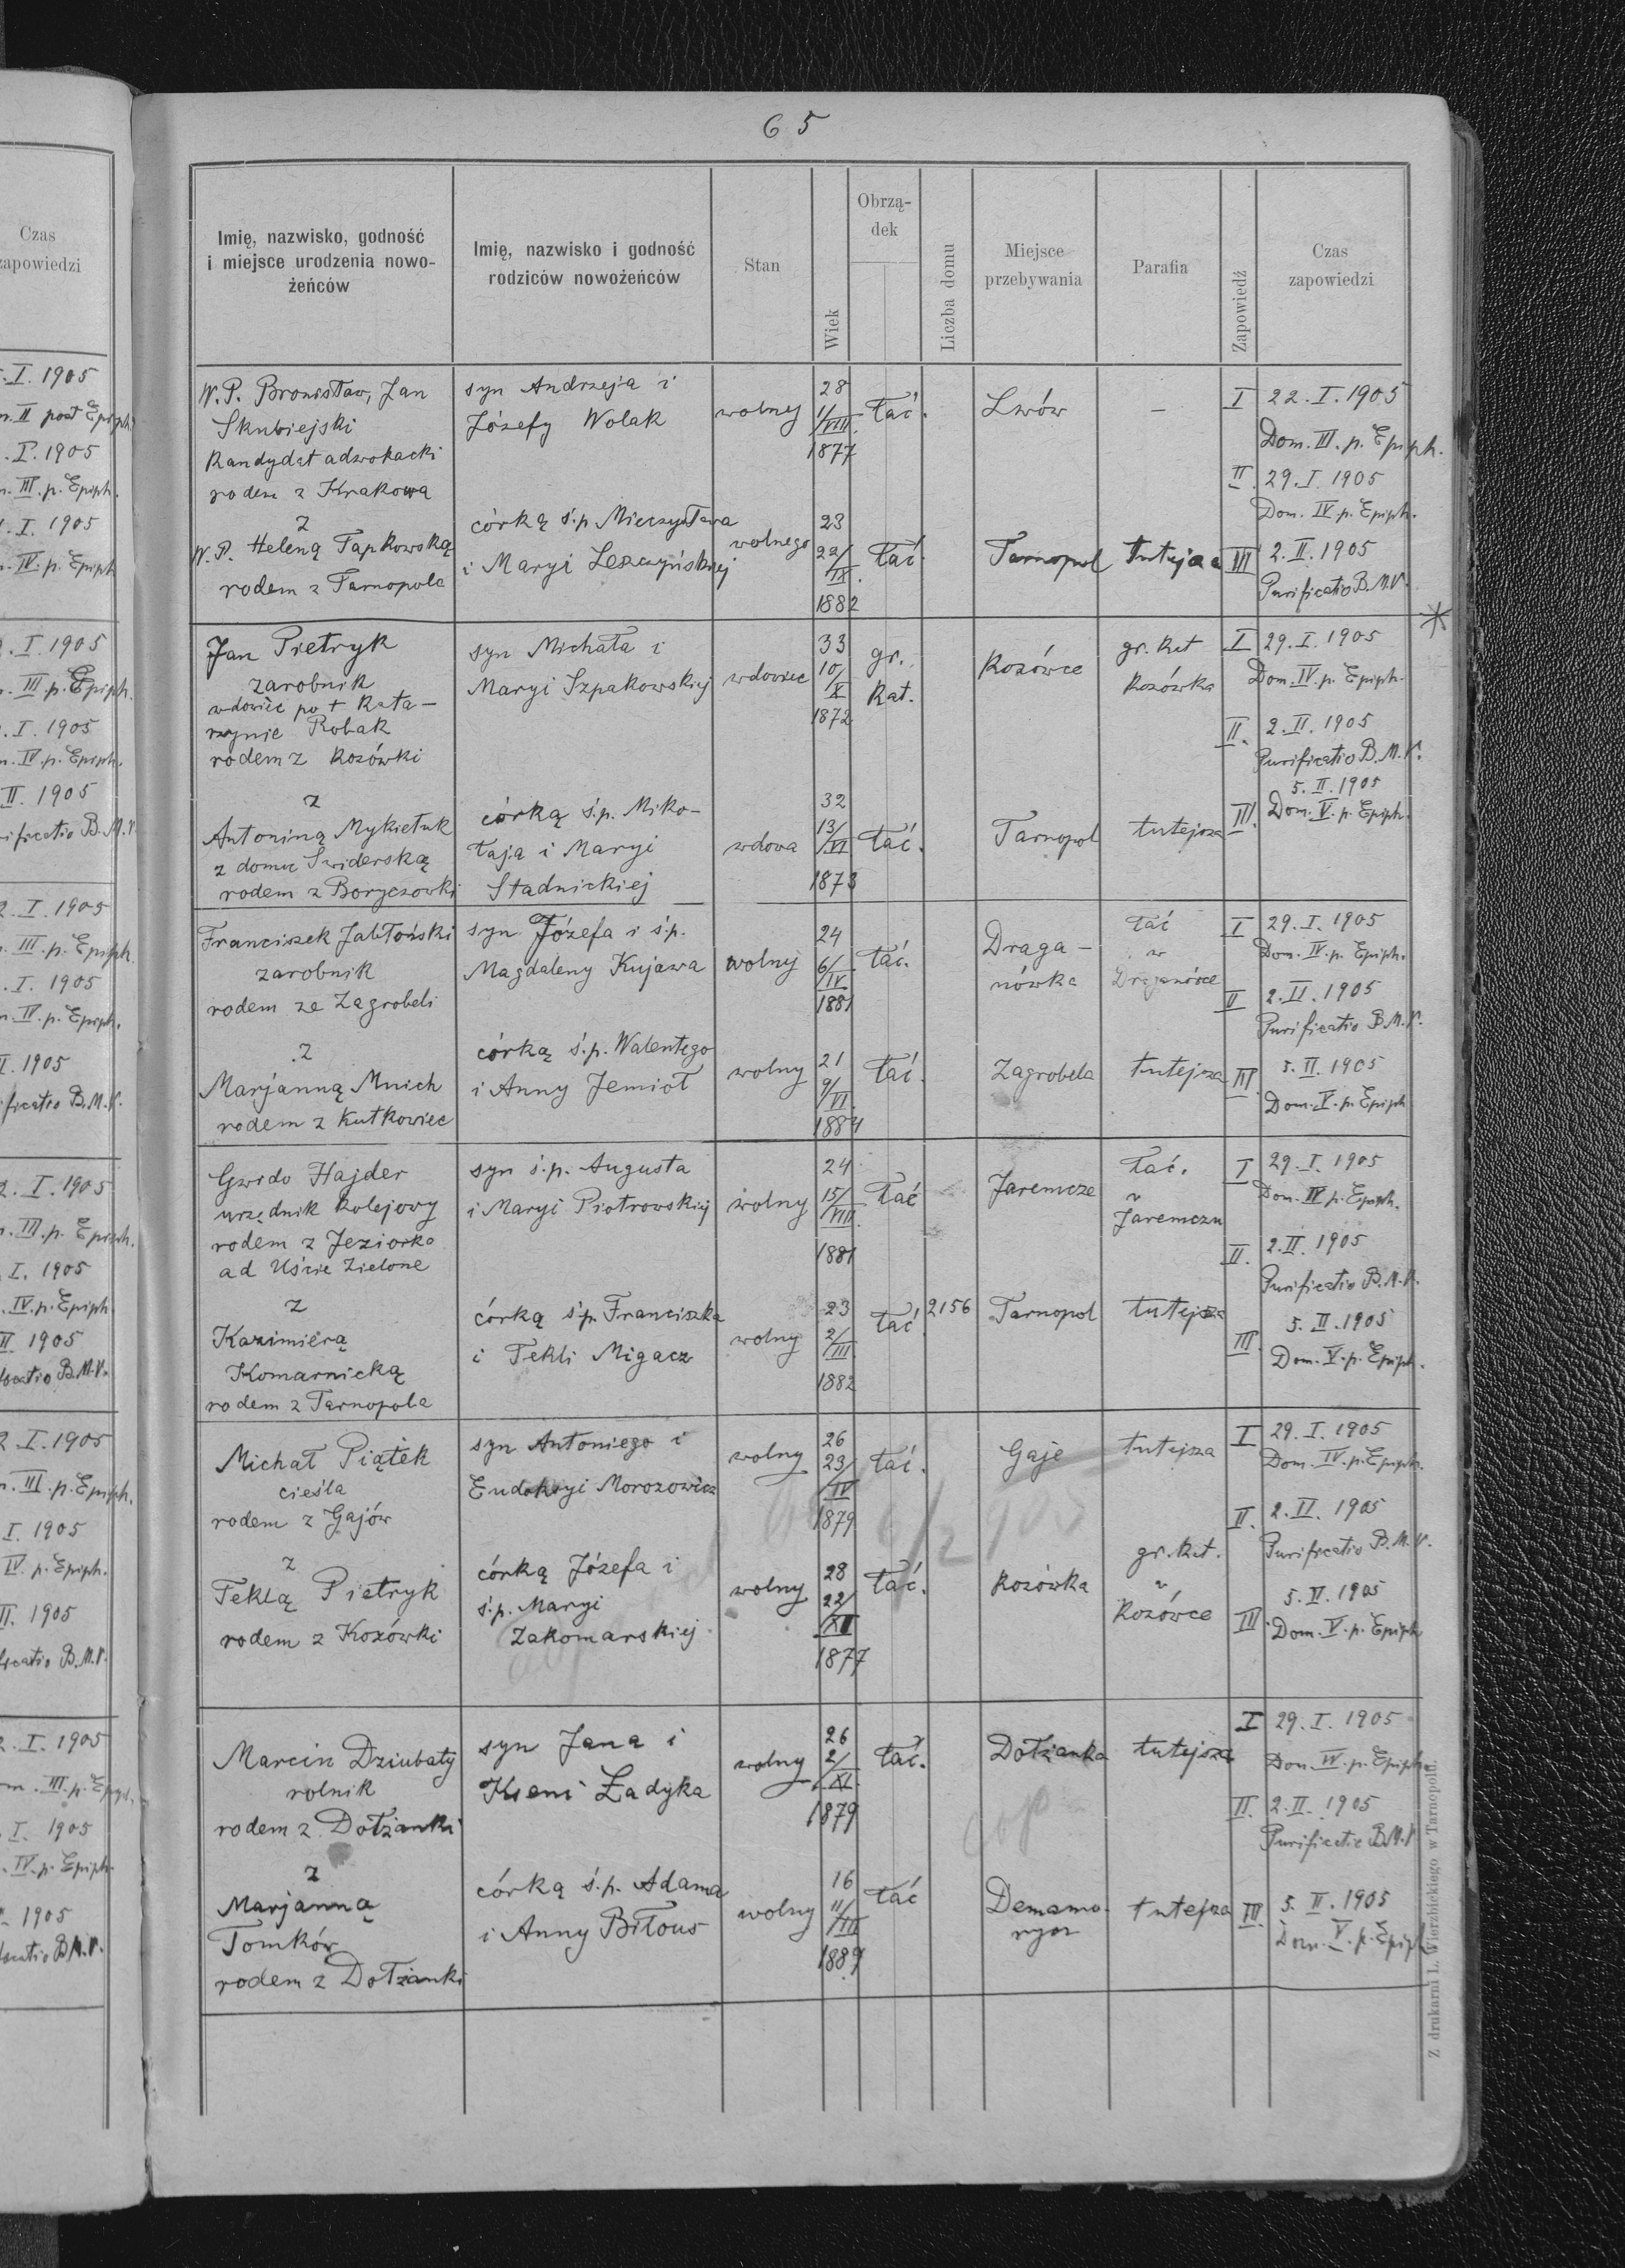 65
Czas
zapowiedzi
Imię, nazwisko, godność
i miejsce urodzenia nowo-
żeńców
Imię, nazwisko i godność
rodziców nowożeńców
Stan
Wiek
Obrzą-
dek
Liczba domu
Miejsce
przebywania
Parafia
Zapowiedź
Czas
zapowiedzi
W. P. Bronisław, Jan
Skubiejski
Kandydat adwokacki
rodem z Krakowa
syn Andrzeja i
Józefy Wolak
wolny
28
1/VIII.
1877
łać.
Lwów
—
I 22. I. 1905
Dom. III. p. Epiph.
II. 29. I. 1905
Dom. IV. p. Epiph.
z
W. P. Heleną Łapkowską
rodem z Tarnopola
córką ś.p. Mieczysława
i Maryi Leszczyńskiej
wolnego
23
22/IX.
1882
łać.
Tarnopol
tutejsza
III 2. II. 1905
Purificatio B.M.V.
*
Jan Pietryk
zarobnik
wdowiec po + Kata-
rzynie Robak
rodem z Kozówki
syn Michała i
Maryi Szpakowskiej
wdowiec
33
10/X
1872
gr.
Kat.
Kozówce
gr. kat
Kozówka
I 29. I. 1905
Dom. IV. p. Epiph.
II. 2. II. 1905
Purificatio B.M.V.
z
Antoniną Mykietuk
z domu Swiderską
rodem z Boryczowki
córką ś.p. Miko-
łaja i Maryi
Stadnickiej
wdowa
32
13/VI
1873
łać.
Tarnopol
tutejsza
III. 5. II. 1905
Dom. V. p. Epiph.
Franciszek Jabłoński
zarobnik
rodem ze Zagrobeli
syn Józefa i ś.p.
Magdaleny Kujawa
wolny
24
6/IV
1881
łać.
Draga-
nówka
łać
w
Draganówce
I 29. I. 1905
Dom. IV. p. Epiph.
II 2. II. 1905
Purificatio B.M.V.
z
Marjanną Mnich
rodem z Kutkowiec
córką ś.p. Walentego
i Anny Jemioł
wolny
21
9/VI.
1884
łać.
Zagrobela
tutejsza
III. 5. II. 1905
Dom. V. p. Epiph
Gwido Hajder
urzędnik kolejowy
rodem z Jeziorka
ad Uście Zielone
syn ś.p. Augusta
i Maryi Piotrowskiej
wolny
24
15/VIII.
1881
łać
Jaremcze
łać.
w
Jaremczu
I 29. I. 1905
Dom. IV p. Epiph.
II. 2. II. 1905
Purificatio B.M.V.
z
Kazimierą
Komarnicką
rodem z Tarnopola
córką ś.p. Franciszka
i Tekli Migacz
wolny
23
2/III.
1882
łać
2156
Tarnopol
tutejsza
III. 5. II. 1905
Dom. V. p. Epiph.
Michał Piątek
cieśla
rodem z Gajów
syn Antoniego i
Eudoksyi Morozowicz
wolny
26
23/IV
1879
łać.
Gaje
tutejsza
I 29. I. 1905
Dom. IV. p. Epiph.
II. 2. II. 1905
Purificatio B.M.V.
z
Teklą Pietryk
rodem z Kozówki
córką Józefa i
ś.p. Maryi
Zakomarskiej
wolny
28
22/XII
1877
łać.
Kozówka
gr. kat.
w
Kozówce
III. 5. II. 1905
Dom. V. p. Epiph
Marcin Dziubaty
rolnik
rodem z Dołżanki
syn Jana i
Kseni Ładyka
wolny
26
2/XI.
1879
łać.
Dołżanka
tutejsza
I 29. I. 1905
Dom. IV. p. Epiph.
II. 2. II. 1905
Purificatio B.M.V
z
Marjanną
Tomków
rodem z Dołżanki
córką ś.p. Adama
i Anny Biłous
wolny
16
11/III
1889
łać
Demamo-
rycz
tutejsza
III. 5. II. 1905
Dom. V. p. Epiph
Z drukarni L. Wierzbickiego w Tarnopolu.